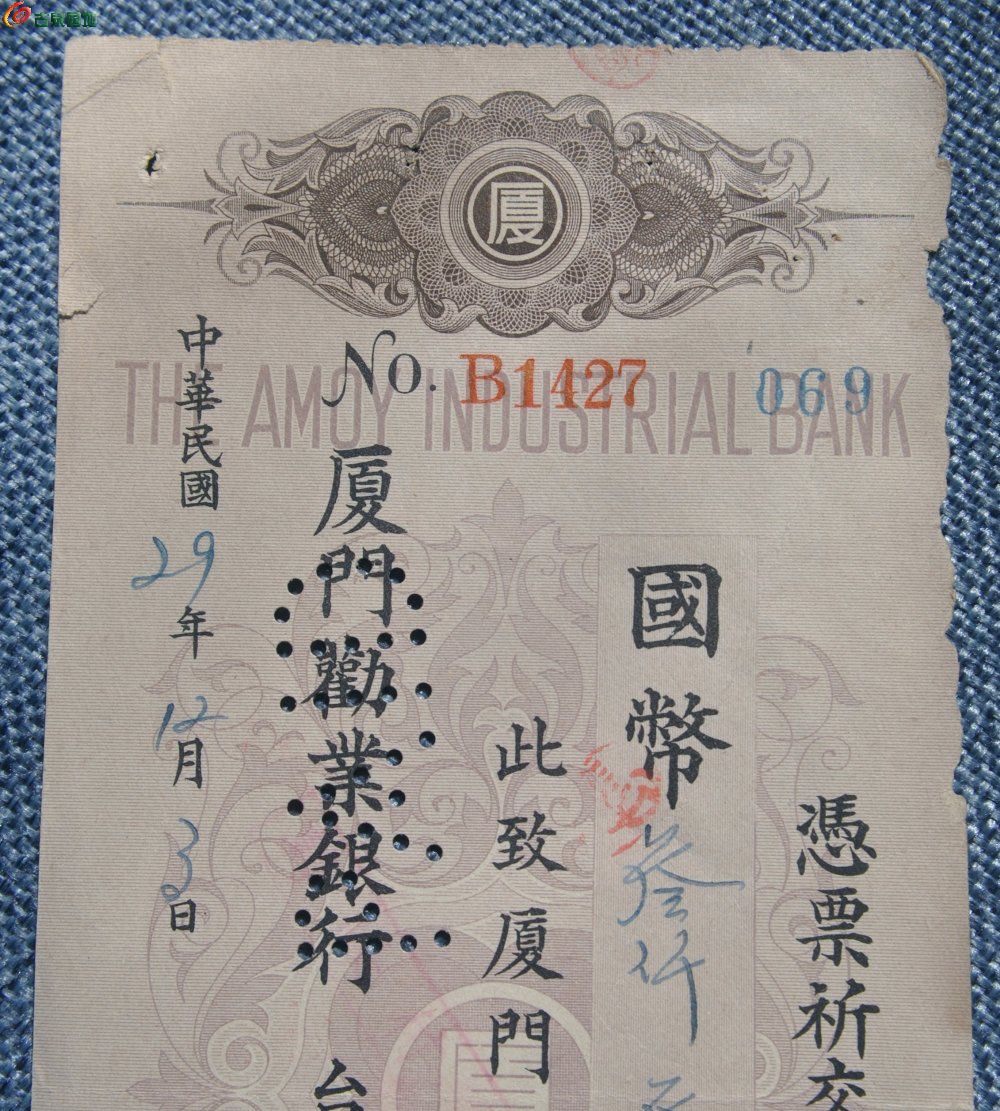 厦
No. B1427 069
THE AMOY INDUSTRIAL BANK
憑票祈交
國幣叄仟
此致厦門
厦門勸業銀行 台
中華民國29年12月3日